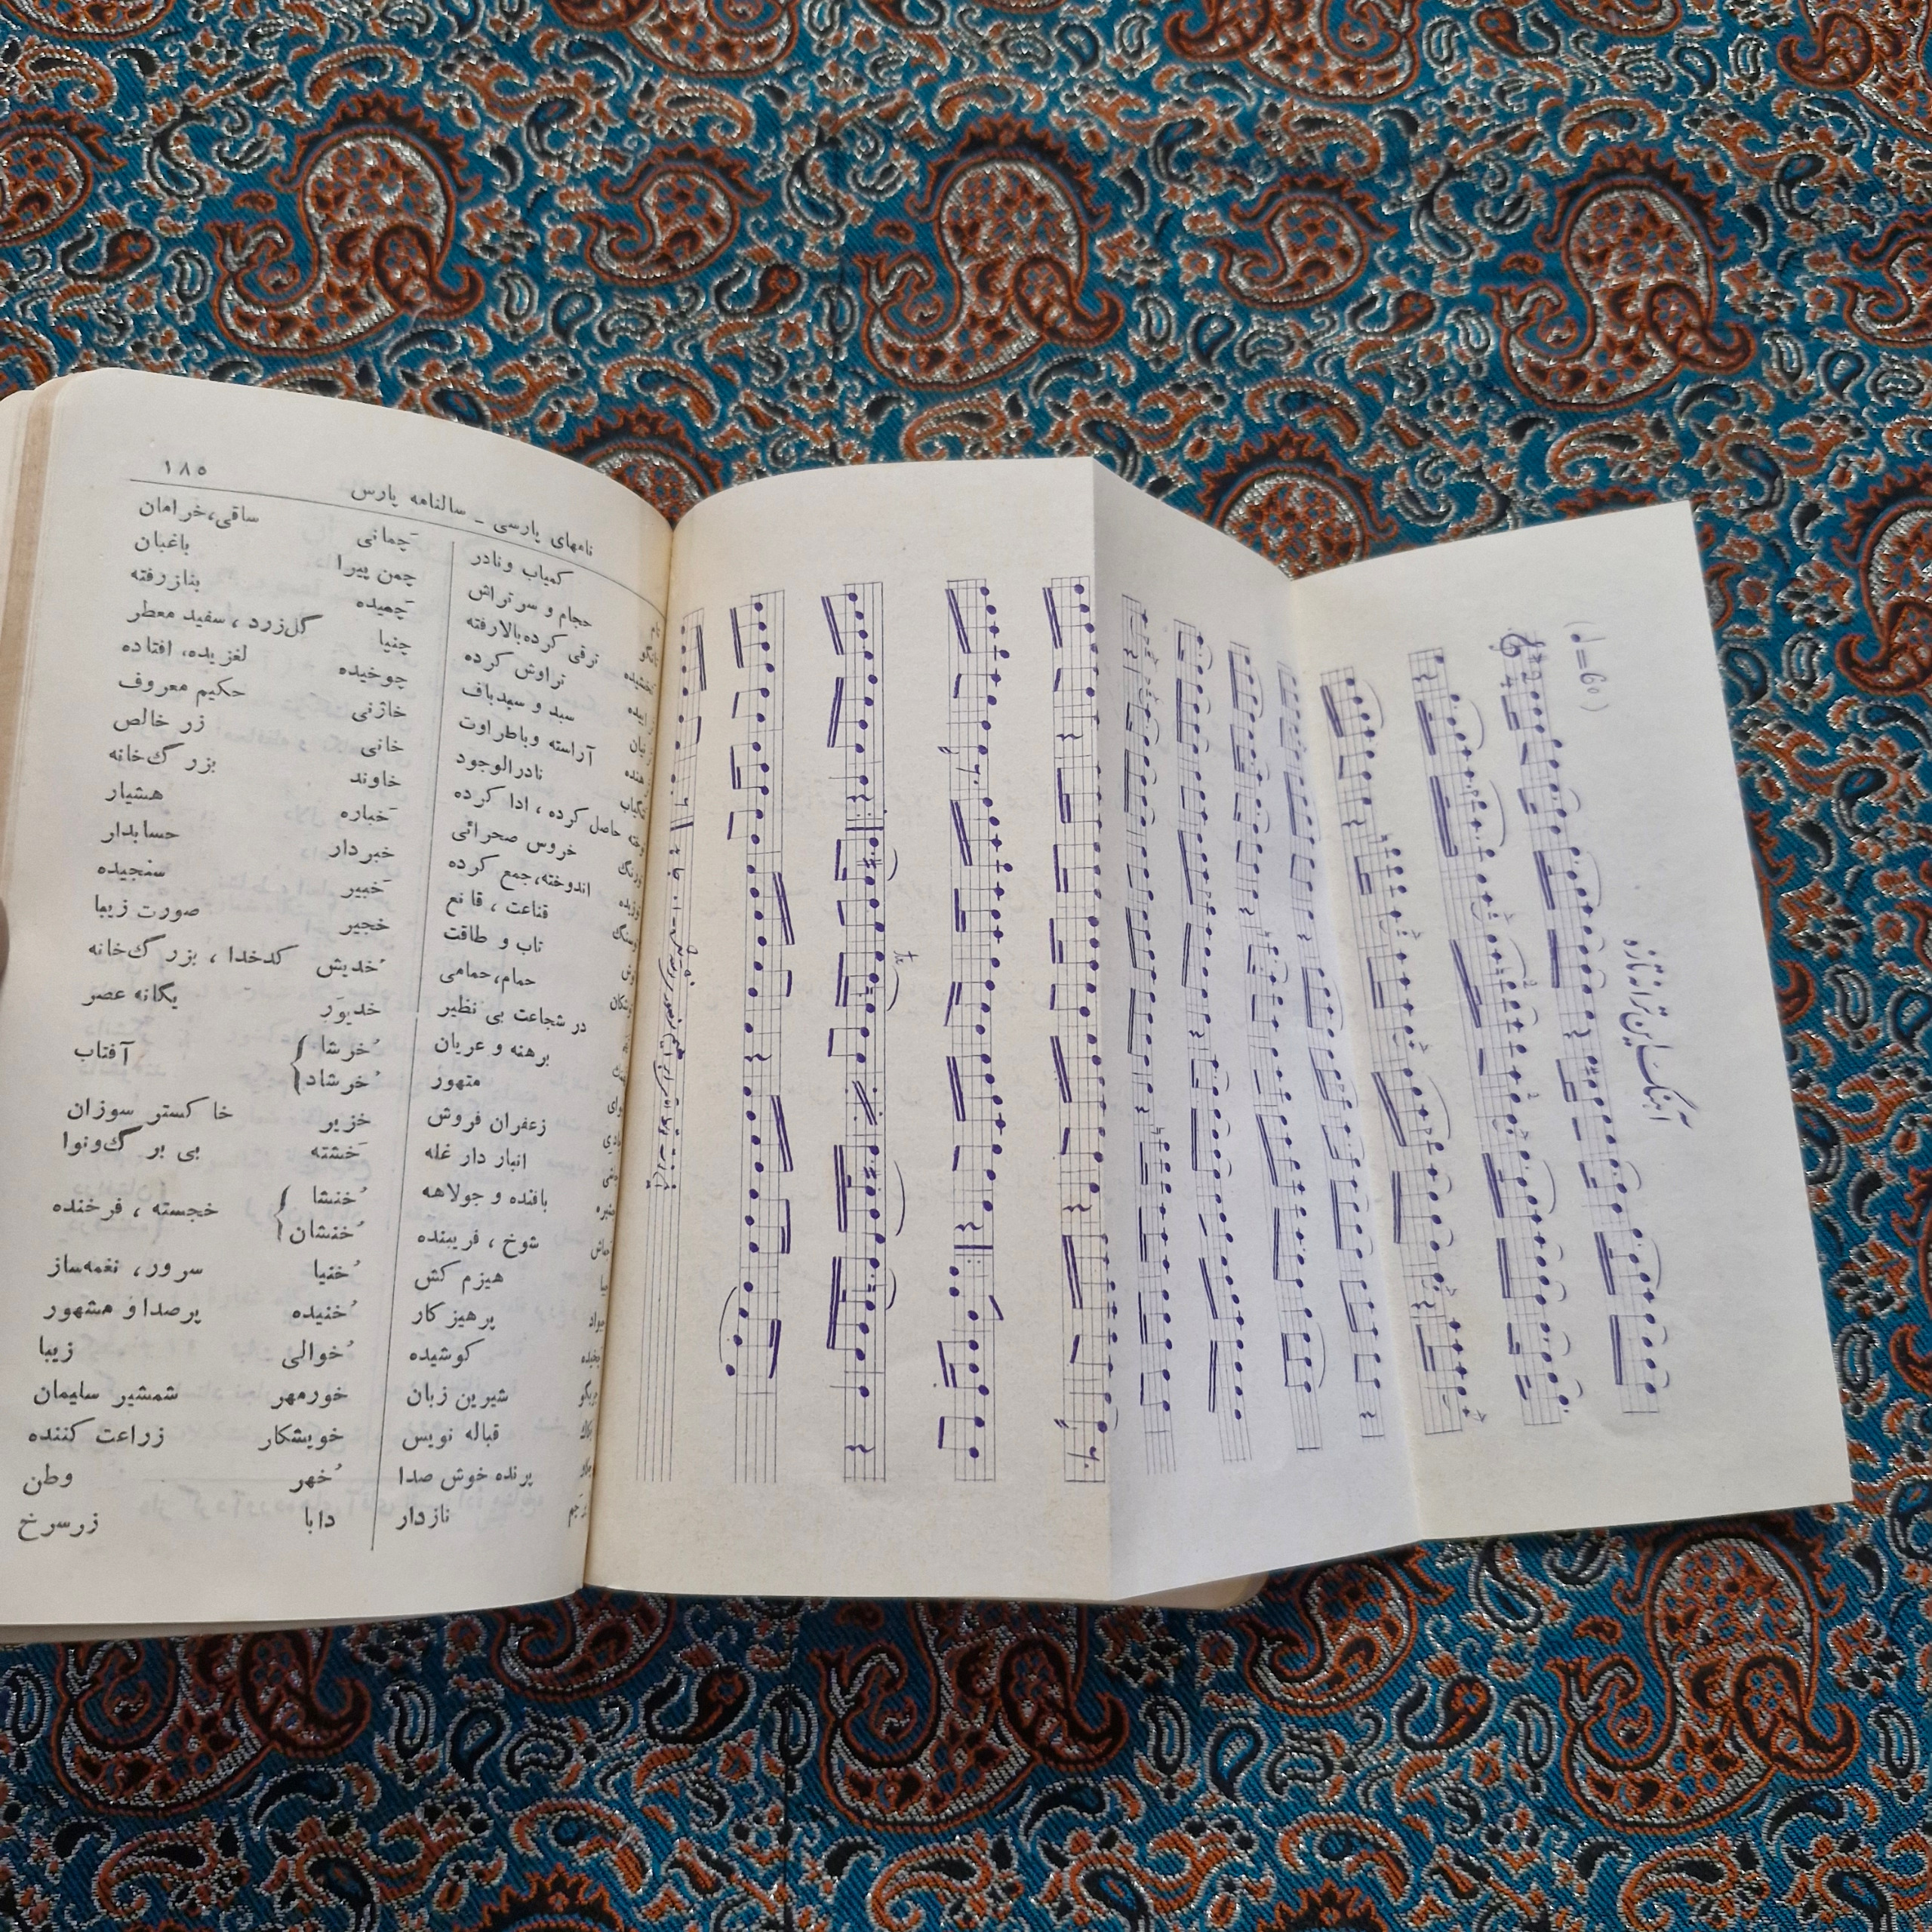 نامهای پارسی - سالنامه پارس ۱۸۵
کمیاب ونادر
حجام و سرتراش
ترقی کرده بالارفته
تراوش کرده
سبد و سبدباف
آراسته وباطراوت
نادرالوجود
حاصل کرده ، ادا کرده
خروس صحرائی
اندوخته،جمع کرده
قناعت ، قانع
تاب و طاقت
حمام،حمامی
در شجاعت بی نظیر
برهنه و عریان
متهور
زعفران فروش
انبار دار غله
بافنده و جولاهه
شوخ ، فریبنده
هیزم کش
پرهیز کار
کوشیده
شیرین زبان
قباله نویس
پرنده خوش صدا
نازدار
چَمانی ساقی،خرامان
چمن پیرا باغبان
چَمیده بنازرفته
چنپا گل‌زرد ، سفید معطر
چوخیده لغزیده، افتاده
خازنی حکیم معروف
خانی زر خالص
خاوند بزرگ‌خانه
خَباره هشیار
خبردار حسابدار
خَبیر سنجیده
خجیر صورت زیبا
خُدیش کدخدا ، بزرگ‌خانه
خدیوَر یگانه عصر
خُرشا
خُرشاد } آفتاب
خزیر خاکستر سوزان
خَشته بی برگ‌ونوا
خُنشا
خُنشان } خجسته ، فرخنده
خُنیا سرور، نغمه‌ساز
خُنیده پرصدا و مشهور
خُوالی زیبا
خورمهر شمشیر سلیمان
خویشکار زراعت کننده
خُهر وطن
دابا زرسرخ
آهنگ این ترانه تازه
(♩=60)